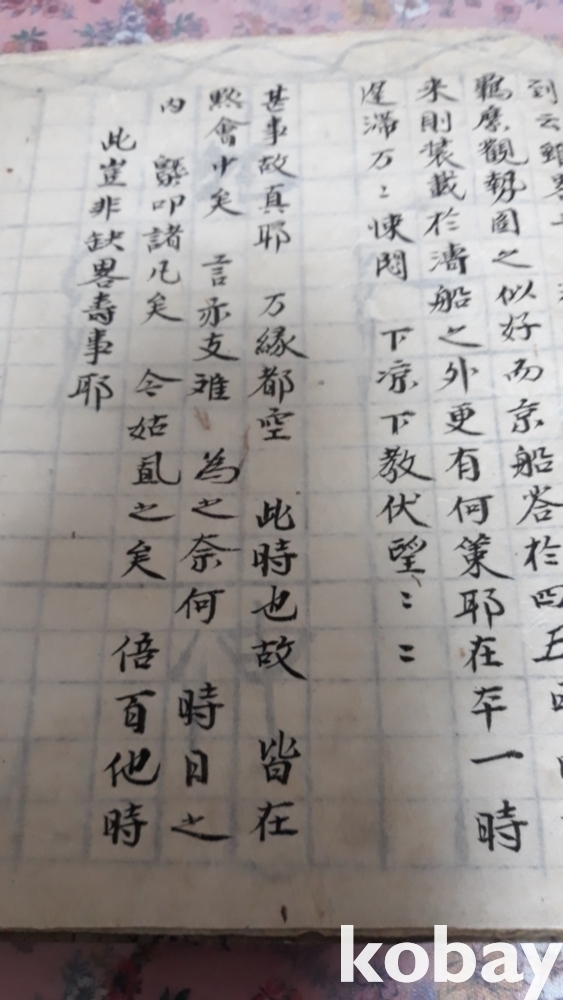 到云
觀勢圖之似好而京船啓於四五
来則装載於濤船之外更有何策耶在一時
遅滞万〻悚悶 下凉下教伏望〻〻
甚事故真耶 万緣都空 此時也故 皆在
默會中矣 言亦支離 為之奈何 時日之
內 叩諸凡矣 今姑 之矣 倍百他時
此豈非缺畧壽事耶
kobay